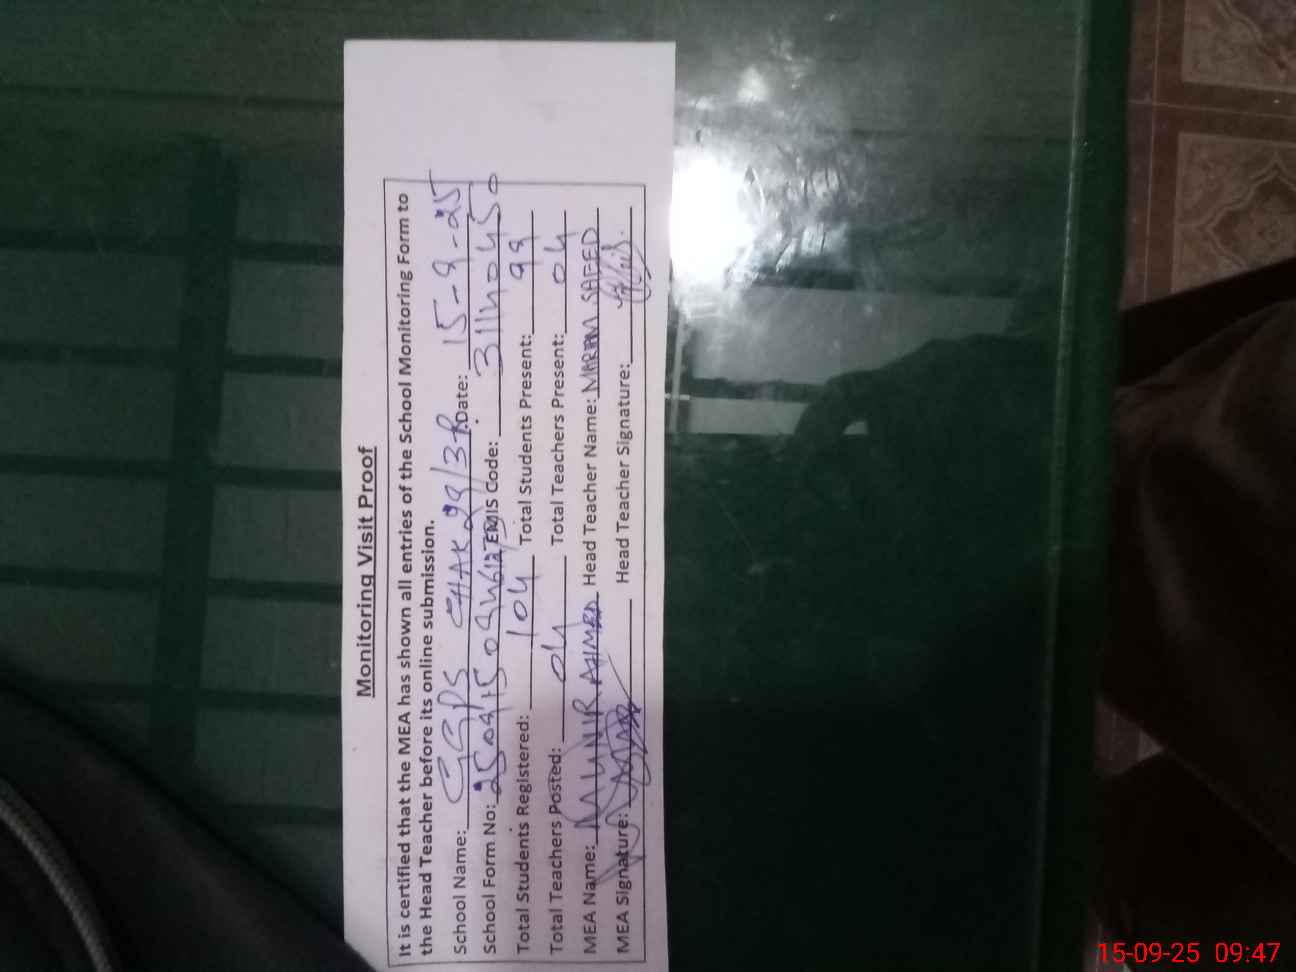 Monitoring Visit Proof
It is certified that the MEA has shown all entries of the School Monitoring Form to
the Head Teacher before its online submission.
School Name: GGPS CHAK 99/3R Date: 15-9-25
School Form No: EMIS Code: 31140450
Total Students Registered: 104 Total Students Present: 99
Total Teachers Posted: 04 Total Teachers Present: 04
MEA Name: MUNIR AHMED Head Teacher Name: MARYAM SAEED
MEA Signature: Head Teacher Signature:
15-09-25 09:47